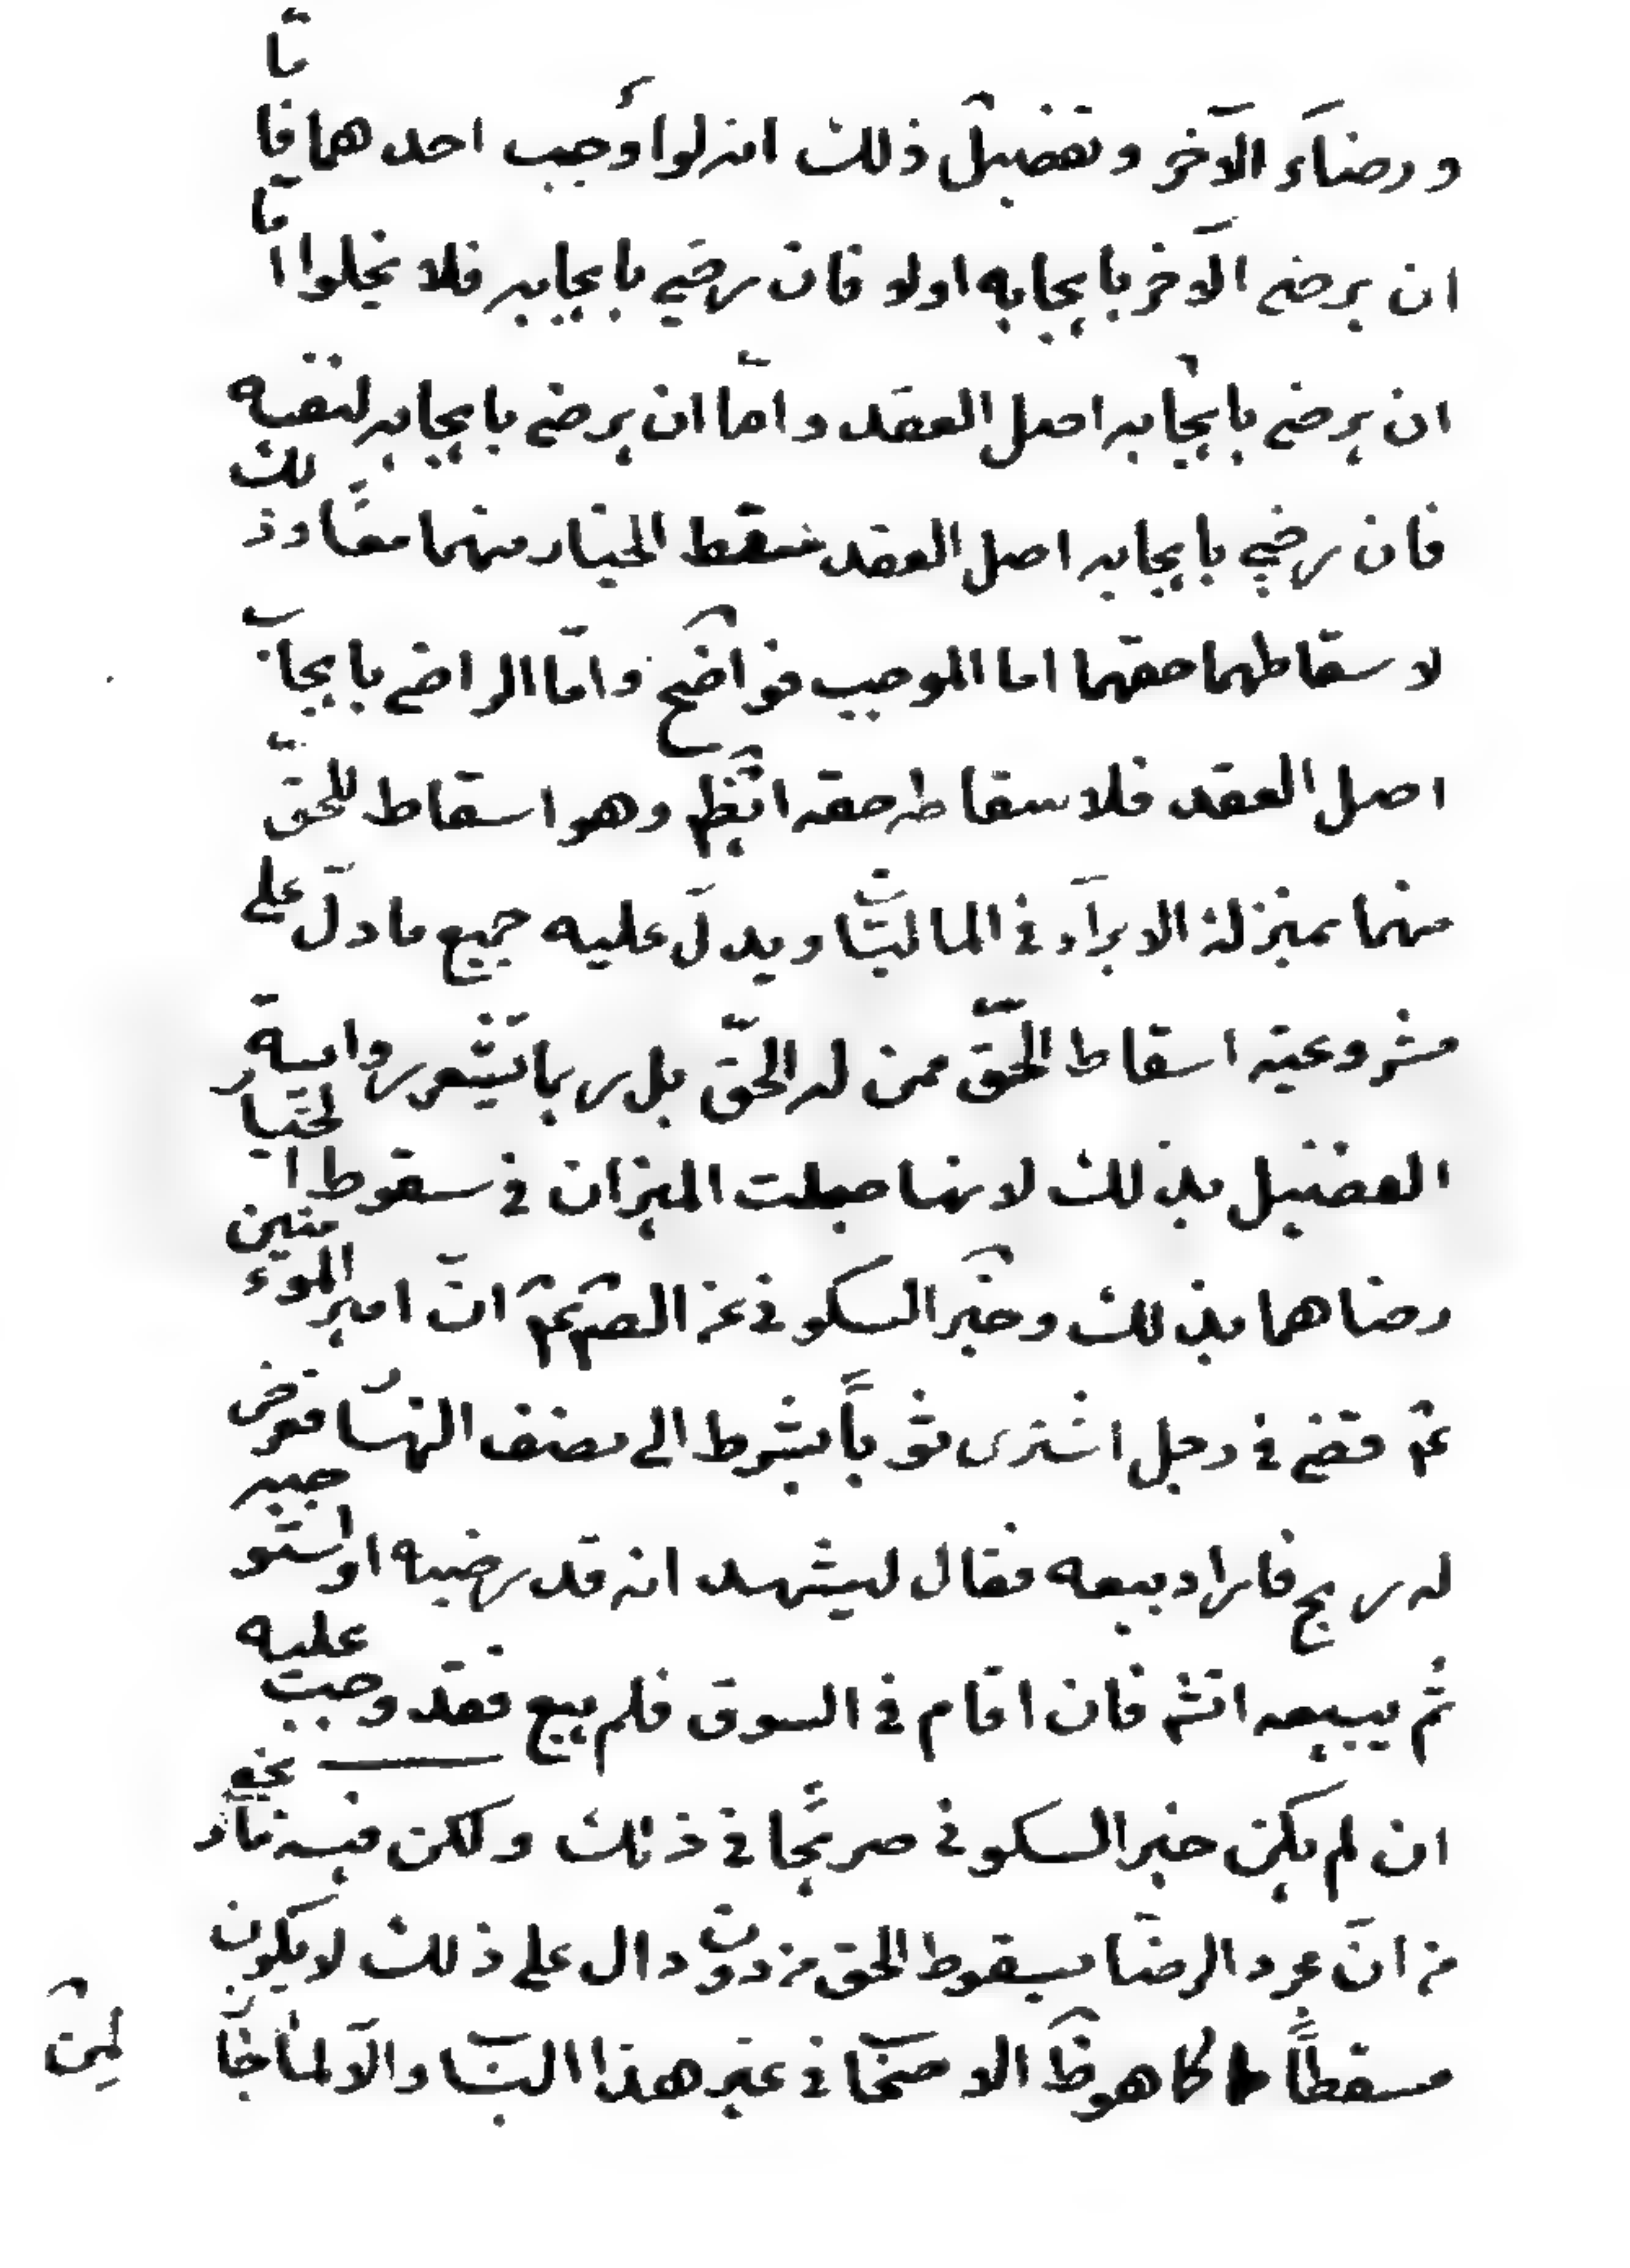 ورضاء الآخر وتفضيل ذلك انه لو اوجب احدهما فاما
ان يرضى الآخر بايجابه اولا فان رضي بايجابه فلا يخلوا اما
ان يرضى بايجابه اصل العقد واما ان يرضى بايجابه لنفسه
فان رضي بايجابه اصل العقد سقط الخيار منهما معًا وذلك
لاسقاطهما حقهما اما الموجب فواضح وامّا الراضى بايجاب
اصل العقد فلاسقاطه حقه ايضًا وهو اسقاط للحقّ
منهما بمنزلة الابراء في الماليّات ويدلّ عليه جميع ما دلّ على
مشروعية اسقاط الحقّ ممن له الحقّ بل ربما تشعر رواية
الفضيل بذلك لانها جعلت الميزان في سقوط الخيار
رضاهما بذلك وخبر السكوني عن الصم عم انّ امير المؤمنين
عم قضى في رجل اشترى ثوباً بشرط الى نصف النهار فعرض
له ربح فاراد بيعه فقال ليشهد انه قد رضيه او استوجبه
ثم يبيعه انشم فان اقام في السوق فلم يبع فقد وجب عليه
ان لم يكن خبر السكوني صريحًا في ذلك ولكن فيه تأمّل
من انّ مجرد الرضا بسقوط الحق من دون دال على ذلك لا يكون
مسقطاً كما هو ظ الاصحاب في غير هذا الباب والّا لما جاز
لمن